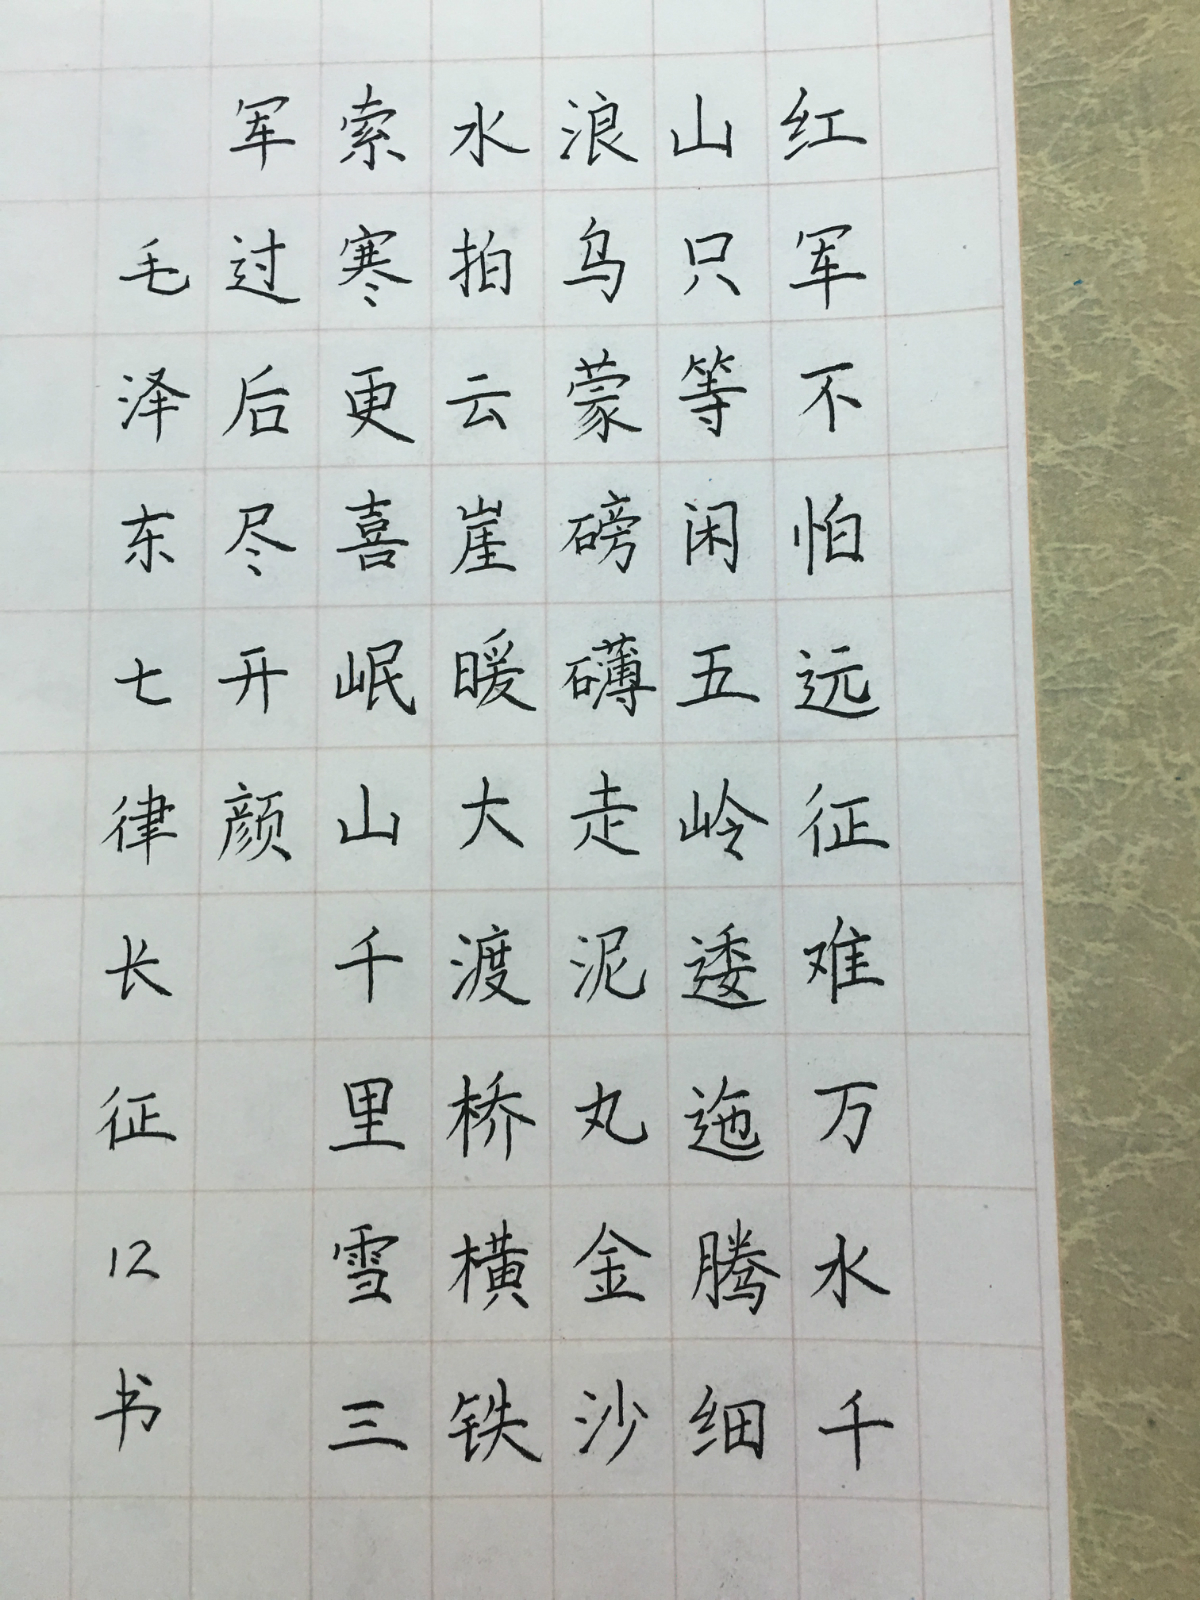 红军不怕远征难万水千
山只等闲五岭逶迤腾细
浪乌蒙磅礴走泥丸金沙
水拍云崖暖大渡桥横铁
索寒更喜岷山千里雪三
军过后尽开颜
毛泽东七律长征12书